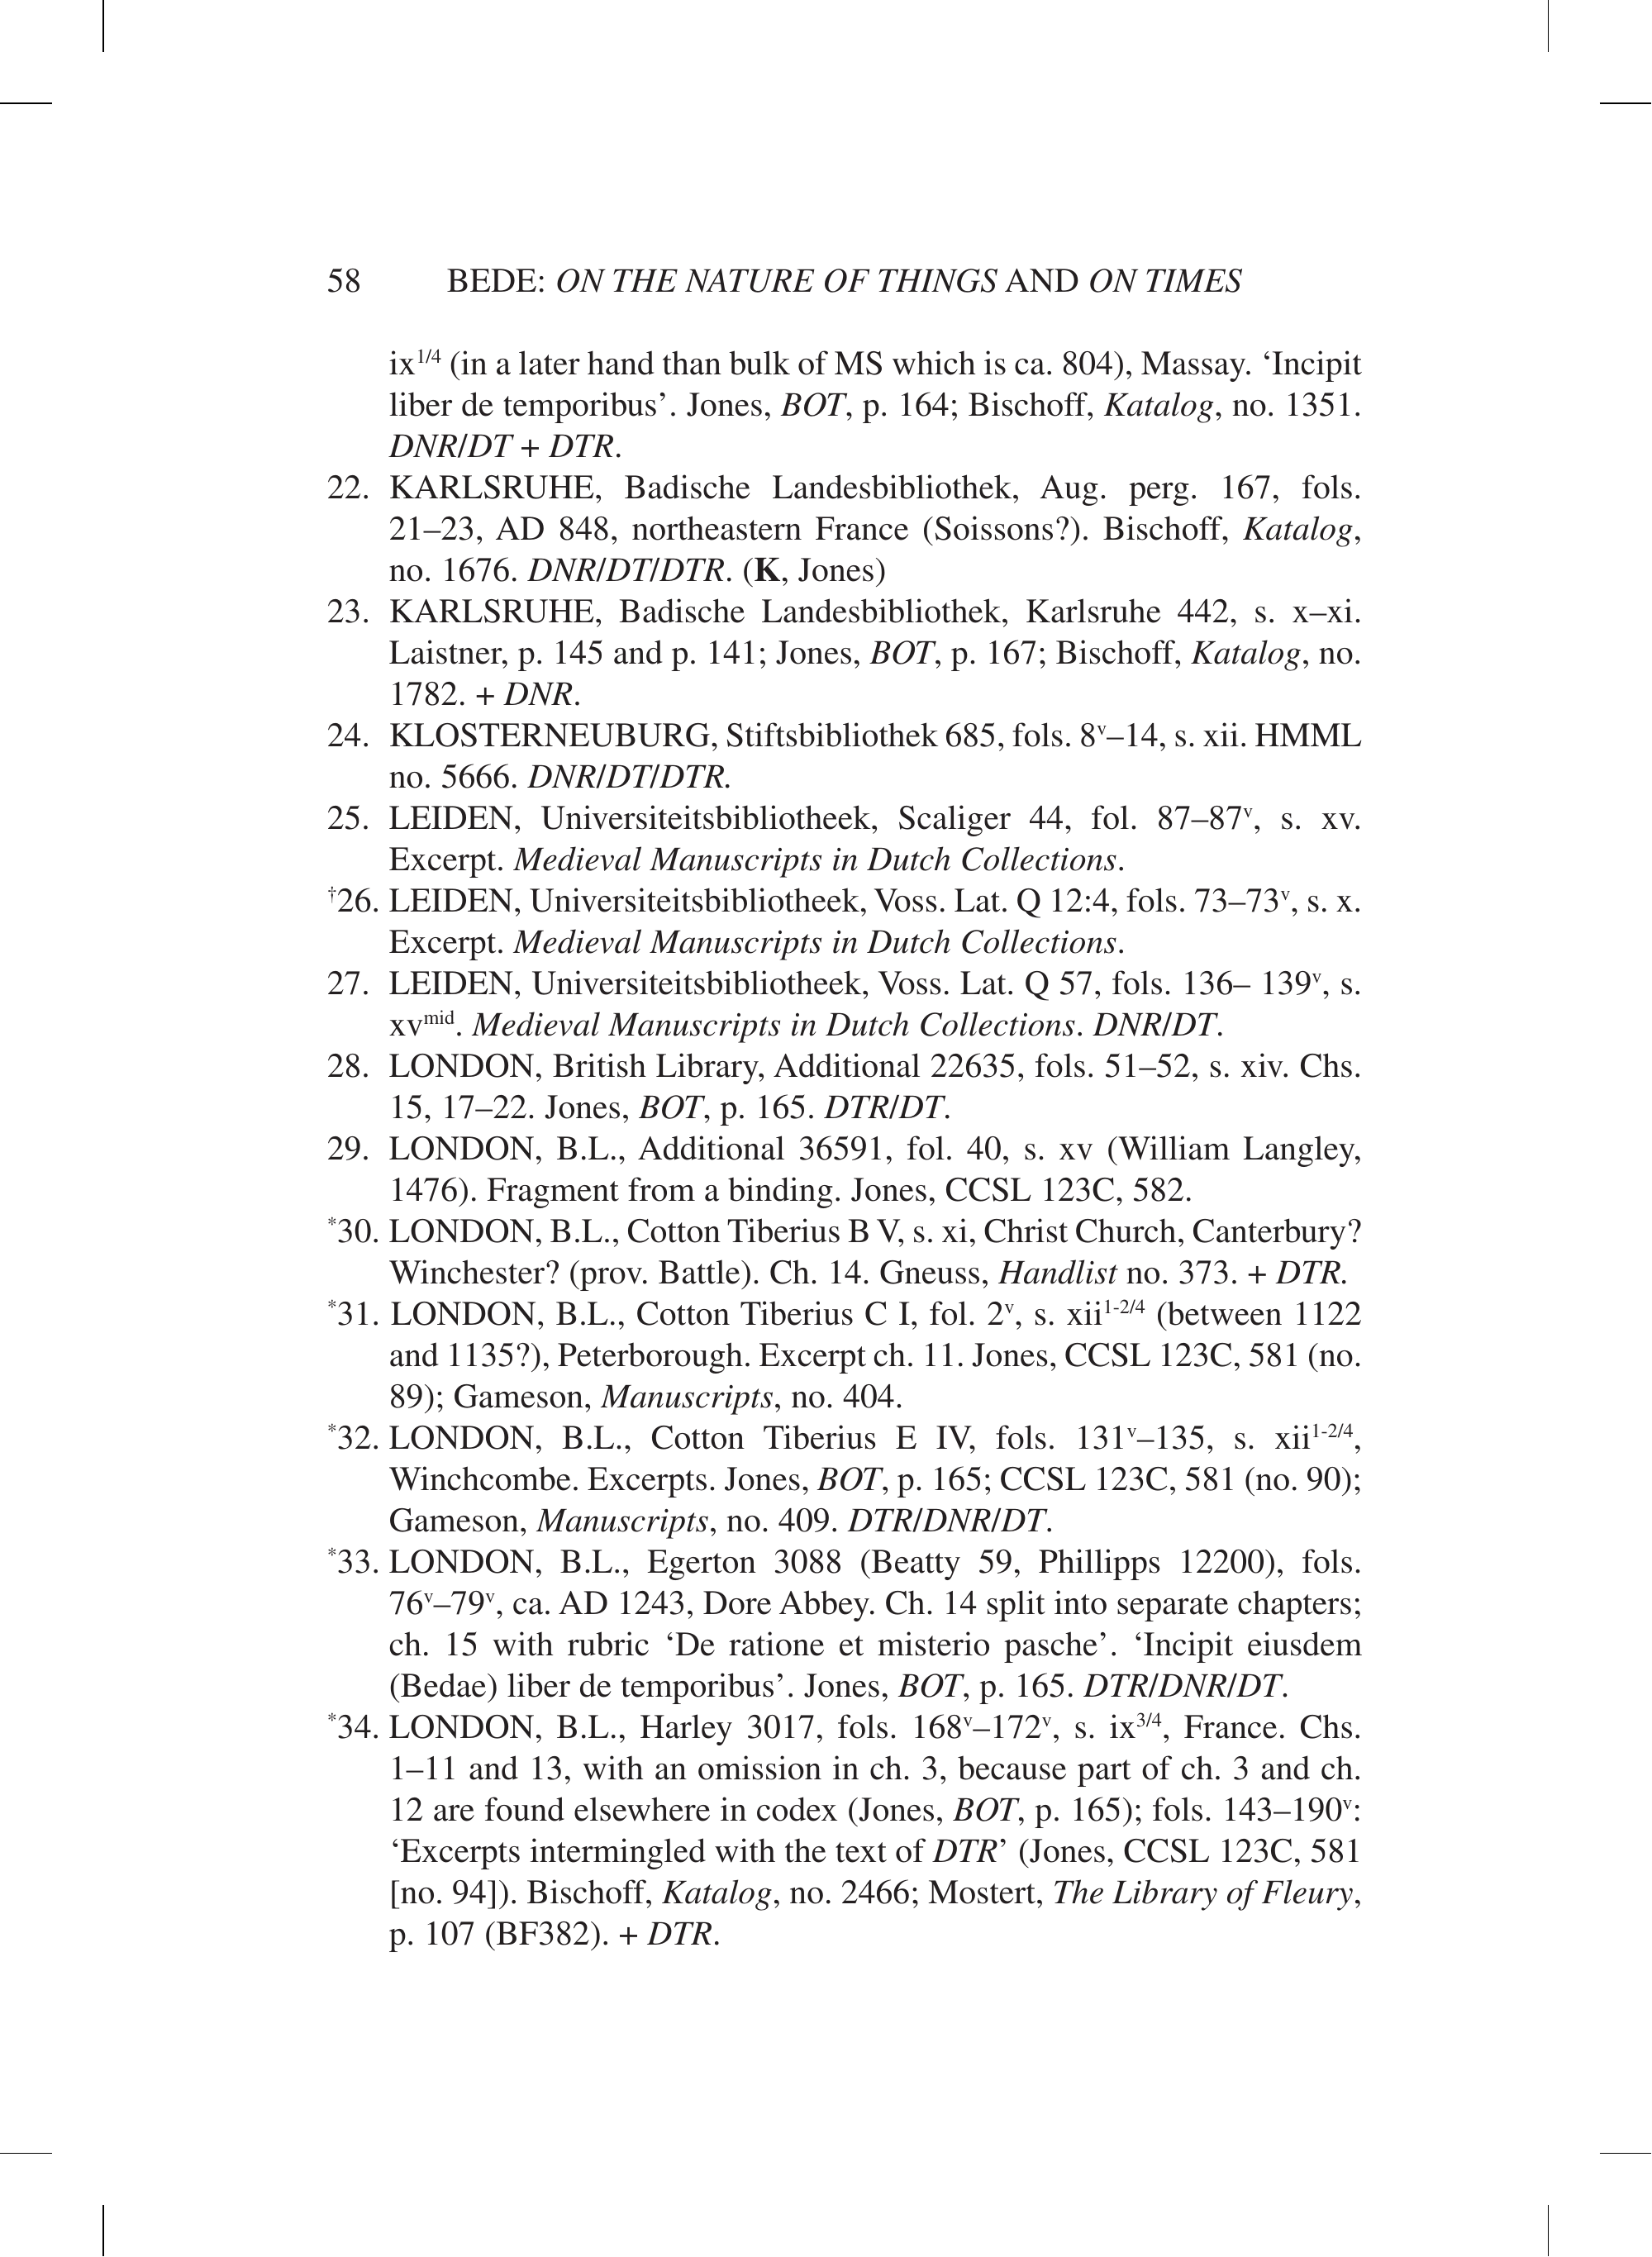 58 BEDE: ON THE NATURE OF THINGS AND ON TIMES
ix1/4 (in a later hand than bulk of MS which is ca. 804), Massay. ‘Incipit
liber de temporibus’. Jones, BOT, p. 164; Bischoff, Katalog, no. 1351.
DNR/DT + DTR.
22. KARLSRUHE, Badische Landesbibliothek, Aug. perg. 167, fols.
21–23, AD 848, northeastern France (Soissons?). Bischoff, Katalog,
no. 1676. DNR/DT/DTR. (K, Jones)
23. KARLSRUHE, Badische Landesbibliothek, Karlsruhe 442, s. x–xi.
Laistner, p. 145 and p. 141; Jones, BOT, p. 167; Bischoff, Katalog, no.
1782. + DNR.
24. KLOSTERNEUBURG, Stiftsbibliothek 685, fols. 8v–14, s. xii. HMML
no. 5666. DNR/DT/DTR.
25. LEIDEN, Universiteitsbibliotheek, Scaliger 44, fol. 87–87v, s. xv.
Excerpt. Medieval Manuscripts in Dutch Collections.
†26. LEIDEN, Universiteitsbibliotheek, Voss. Lat. Q 12:4, fols. 73–73v, s. x.
Excerpt. Medieval Manuscripts in Dutch Collections.
27. LEIDEN, Universiteitsbibliotheek, Voss. Lat. Q 57, fols. 136– 139v, s.
xvmid. Medieval Manuscripts in Dutch Collections. DNR/DT.
28. LONDON, British Library, Additional 22635, fols. 51–52, s. xiv. Chs.
15, 17–22. Jones, BOT, p. 165. DTR/DT.
29. LONDON, B.L., Additional 36591, fol. 40, s. xv (William Langley,
1476). Fragment from a binding. Jones, CCSL 123C, 582.
*30. LONDON, B.L., Cotton Tiberius B V, s. xi, Christ Church, Canterbury?
Winchester? (prov. Battle). Ch. 14. Gneuss, Handlist no. 373. + DTR.
*31. LONDON, B.L., Cotton Tiberius C I, fol. 2v, s. xii1-2/4 (between 1122
and 1135?), Peterborough. Excerpt ch. 11. Jones, CCSL 123C, 581 (no.
89); Gameson, Manuscripts, no. 404.
*32. LONDON, B.L., Cotton Tiberius E IV, fols. 131v–135, s. xii1-2/4,
Winchcombe. Excerpts. Jones, BOT, p. 165; CCSL 123C, 581 (no. 90);
Gameson, Manuscripts, no. 409. DTR/DNR/DT.
*33. LONDON, B.L., Egerton 3088 (Beatty 59, Phillipps 12200), fols.
76v–79v, ca. AD 1243, Dore Abbey. Ch. 14 split into separate chapters;
ch. 15 with rubric ‘De ratione et misterio pasche’. ‘Incipit eiusdem
(Bedae) liber de temporibus’. Jones, BOT, p. 165. DTR/DNR/DT.
*34. LONDON, B.L., Harley 3017, fols. 168v–172v, s. ix3/4, France. Chs.
1–11 and 13, with an omission in ch. 3, because part of ch. 3 and ch.
12 are found elsewhere in codex (Jones, BOT, p. 165); fols. 143–190v:
‘Excerpts intermingled with the text of DTR’ (Jones, CCSL 123C, 581
[no. 94]). Bischoff, Katalog, no. 2466; Mostert, The Library of Fleury,
p. 107 (BF382). + DTR.